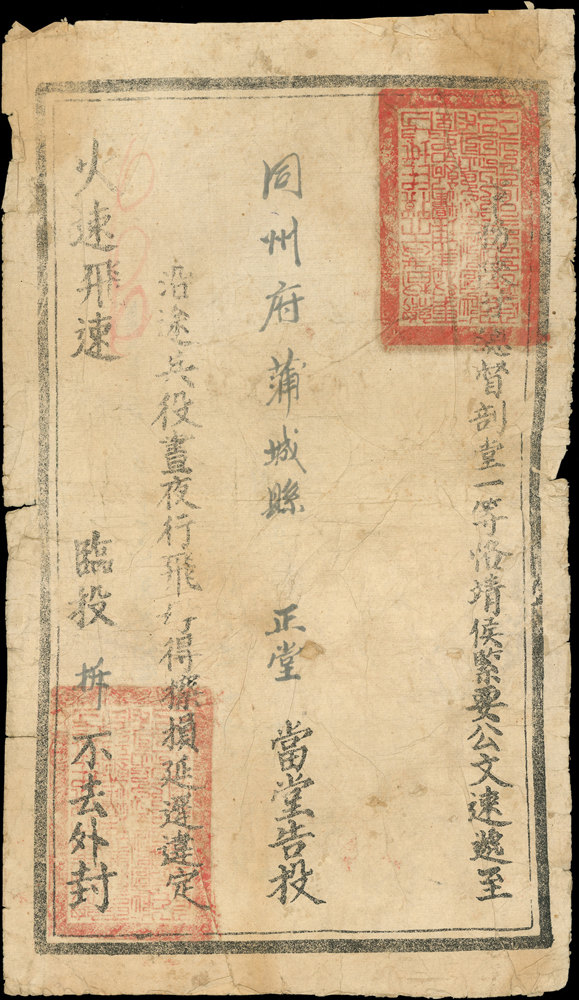 總督部堂一等恪靖侯緊要公文速遞至
同州府蒲城縣 正堂 當堂告投
沿途兵役晝夜行飛 得擦損延遲違定
火速飛速 臨投 拆 不去外封